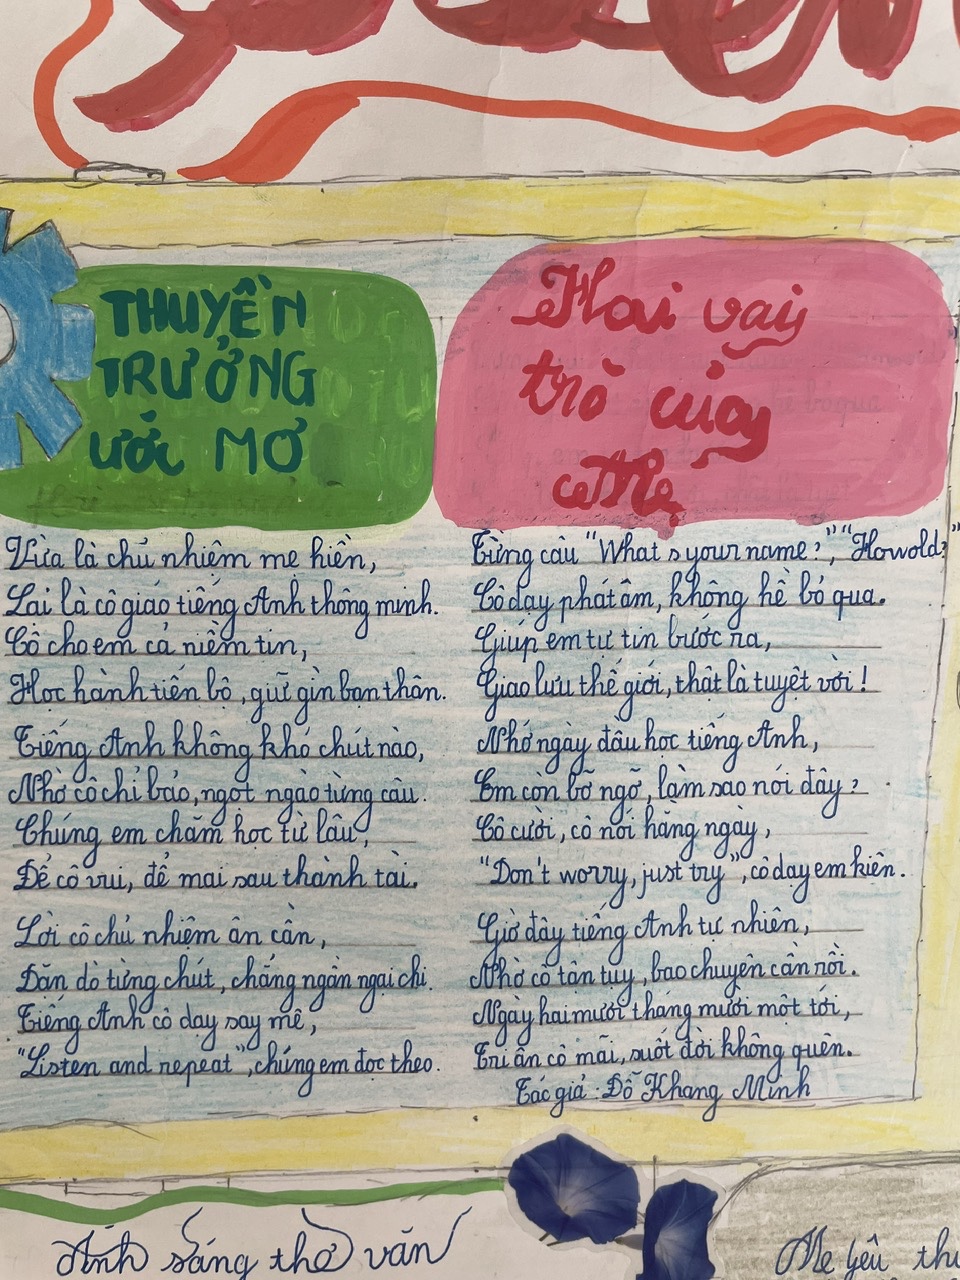 THUYỀN
TRƯỞNG
ƯỚC MƠ
Vừa là chủ nhiệm mẹ hiền,
Lại là cô giáo tiếng Anh thông minh.
Cô cho em cả niềm tin,
Học hành tiến bộ, giữ gìn bạn thân.
Tiếng Anh không khó chút nào,
Nhờ cô chỉ bảo, ngọt ngào từng câu.
Chúng em chăm học từ lâu,
Để cô vui, để mai sau thành tài.
Lời cô chủ nhiệm ân cần,
Dặn dò từng chút, chẳng ngần ngại chi.
Tiếng Anh cô dạy say mê,
"Listen and repeat", chúng em đọc theo.
Hai vai
trò của
Mẹ
Từng câu "What s your name?", "How old?"
Cô dạy phát âm, không hề bỏ qua.
Giúp em tự tin bước ra,
Giao lưu thế giới, thật là tuyệt vời!
Nhớ ngày đầu học tiếng Anh,
Em còn bỡ ngỡ, làm sao nói đây?
Cô cười, cô nói hằng ngày,
"Don't worry, just try", cô dạy em kiên.
Giờ đây tiếng Anh tự nhiên,
Nhờ cô tận tụy, bao chuyện cần rồi.
Ngày hai mươi tháng mười một tới,
Tri ân cô mãi, suốt đời không quên.
Tác giả: Đỗ Khang Minh
Ánh sáng thơ văn
Mẹ yêu